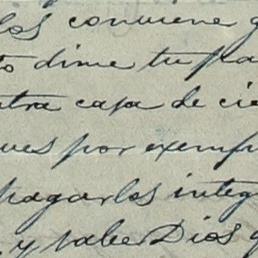 los conviene
to dime tu pa
tra casa de cie
ues por exemp
pagarlos integ
y sabe Dios q